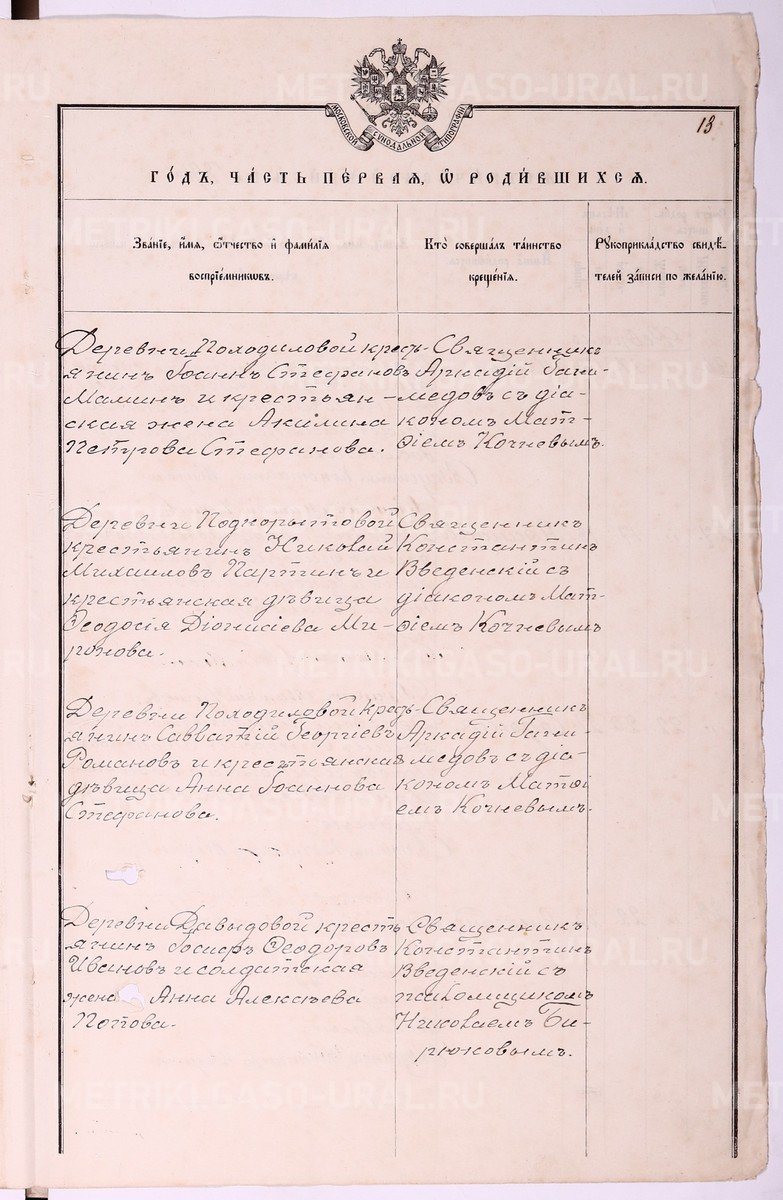 METRIKI.GASO-URAL.RU
МОСКОВСКОЙ СѴНОДАЛЬНОЙ ТИПОГРАФІИ
13
ГО́ДЪ, ЧА́СТЬ ПЕ́РВАЯ, Ѽ РОДИ́ВШИХСѦ.
Зва́нїе, и҆́мѧ, ѻ҆́тчество и҆ фами́лїѧ
воспрїе́мникѡвъ.
Кто̀ соверша́лъ та́инство
креще́нїѧ.
Рꙋкоприкла́дство свидѣ́-
телей за́писи по жела́нїю.
Деревни Походиловой кресть-
янинъ Іоаннъ Стефановъ
Маминъ и крестьян-
ская жена Акилина
Петрова Стефанова.
Священникъ
Аркадій Гаги-
медовъ съ діа-
кономъ Мат-
ѳіемъ Кочневымъ.
Деревни Подкорытовой
крестьянинъ Николай
Михаиловъ Партинъ и
крестьянская дѣвица
Ѳеодосія Діонисіева Ми-
ронова.
Священникъ
Константинъ
Введенскій съ
діакономъ Мат-
ѳіемъ Кочневымъ
Деревни Походиловой Кресть-
янинъ Савватій Георгіевъ
Романовъ и крестьянская
дѣвица Анна Іоаннова
Стефанова.
Священникъ
Аркадій Гаги-
медовъ съ діа-
кономъ Матѳі
емъ Кочневымъ.
Деревни Давыдовой кресть
янинъ Іосифъ Ѳеодоровъ
Ивановъ и солдатская
жена Анна Алексѣева
Попова.
Священникъ
Константинъ
Введенскій съ
псаломщикомъ
Николаемъ Би-
рюковымъ.